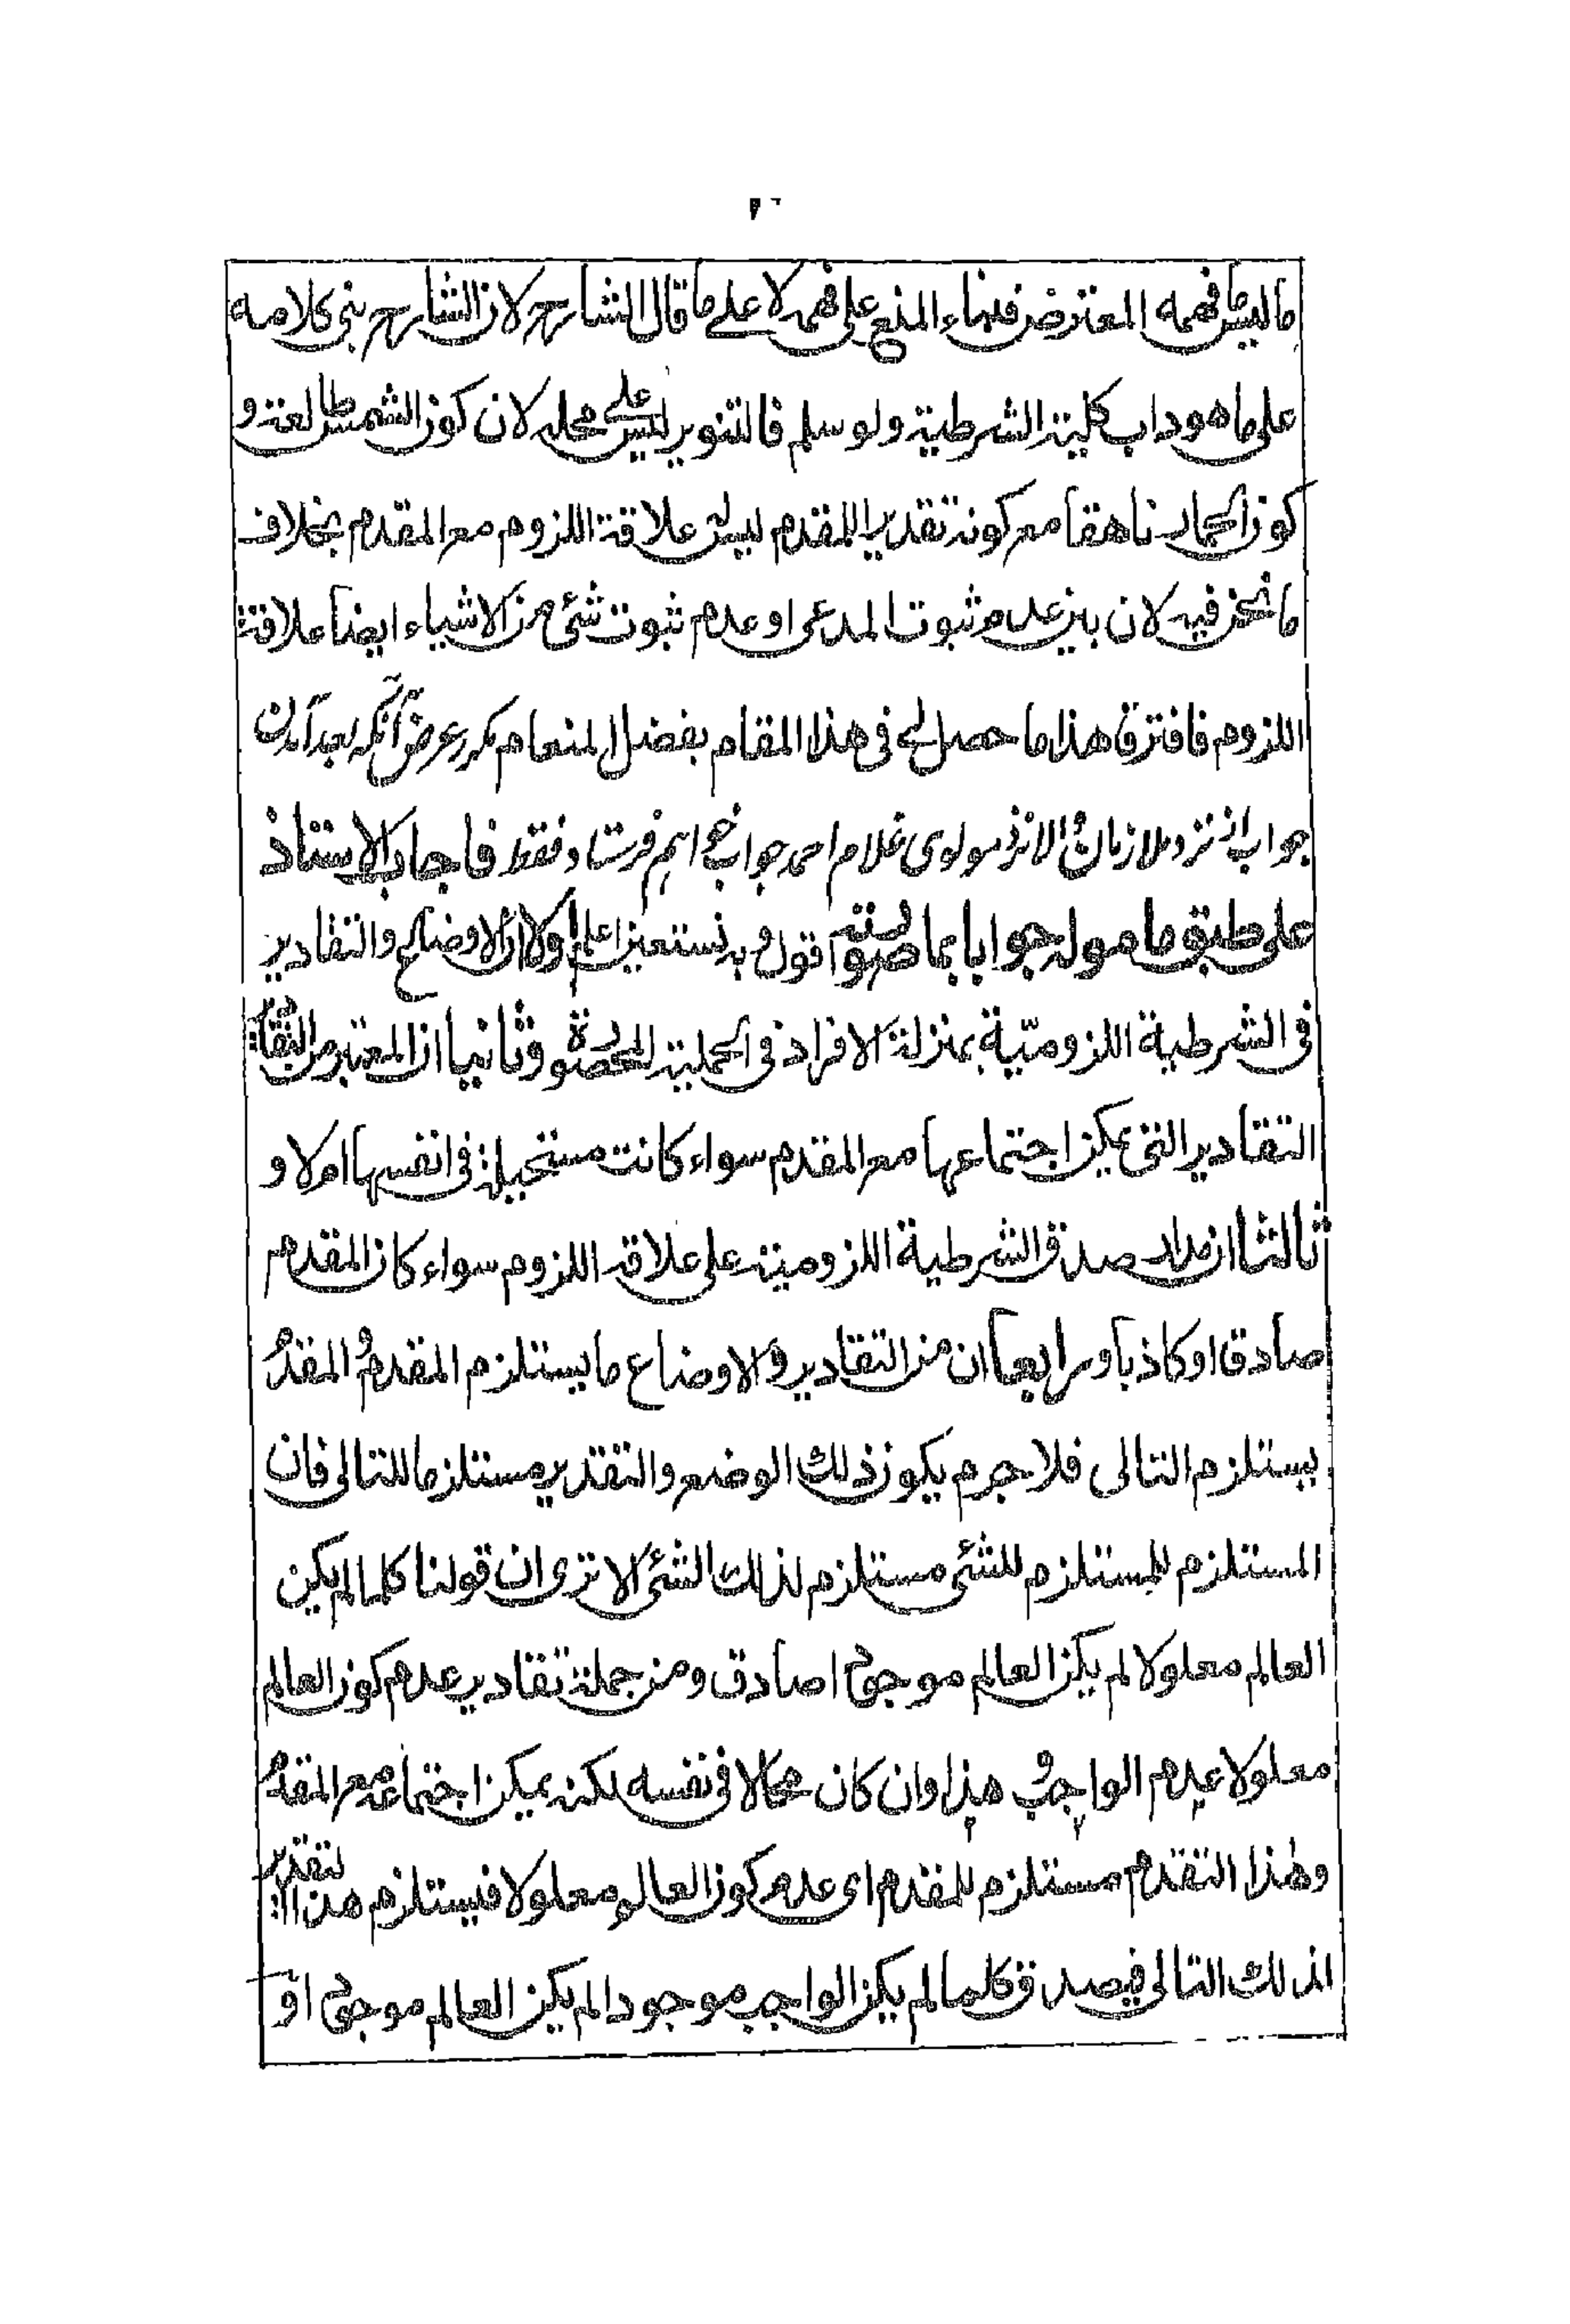 ما ليس ما فهمه المعترض فبناء المنع على فهمه لا على ما قال الشارح لان الشارح بنى كلامه
على ما هو داب كلية الشرطية ولو سلم فالتنوير ليس على محله لان كون الشمس طالعة و
كون الحمار ناهقا مع كونه تقديرا للمقدم ليس له علاقة اللزوم مع المقدم بخلاف
ما نحن فيه لان بين عدم ثبوت المدعى او عدم ثبوت شئ من الاشياء ايضا علاقة
اللزوم فافترقا هذا ما حصل لى فى هذا المقام بفضل المنعام مكرر عرض آنكه بعد آمدن
جواب از نزد ملازمان مولوى غلام احمد جواب خواهم فرستاد فقط فاجاب الاستاذ
على طبق ما موله جوابا بما صورته اقول و به نستعين اعلم اولا ان الاوضاع والتقادير
فى الشرطية اللزومية بمنزلة الافراد فى الحملية المحصورة وثانيا ان المعتبر من
التقادير التى يمكن اجتماعها مع المقدم سواء كانت مستحيلة فى انفسها ام لا و
ثالثا ان مدار صدق الشرطية اللزومية على علاقة اللزوم سواء كان المقدم
صادقا او كاذبا ورابعا ان من التقادير والاوضاع ما يستلزم المقدم و المقدم
يستلزم التالى فلا جرم يكون ذلك الوضع والتقدير مستلزما للتالى فان
المستلزم للمستلزم للشئ مستلزم لذلك الشئ الا ترى ان قولنا كلما لم يكن
العالم معلولا لم يكن العالم موجودا صادق ومن جملة تقادير عدم كون العالم
معلولا عدم الواجب و هذا وان كان محالا فى نفسه لكنه يمكن اجتماعه مع المقدم
وهذا التقدم مستلزم للمقدم اى عدم كون العالم معلولا فيستلزم هذا التقدير
لذلك التالى فيصدق كلما لم يكن الواجب موجودا لم يكن العالم موجودا و